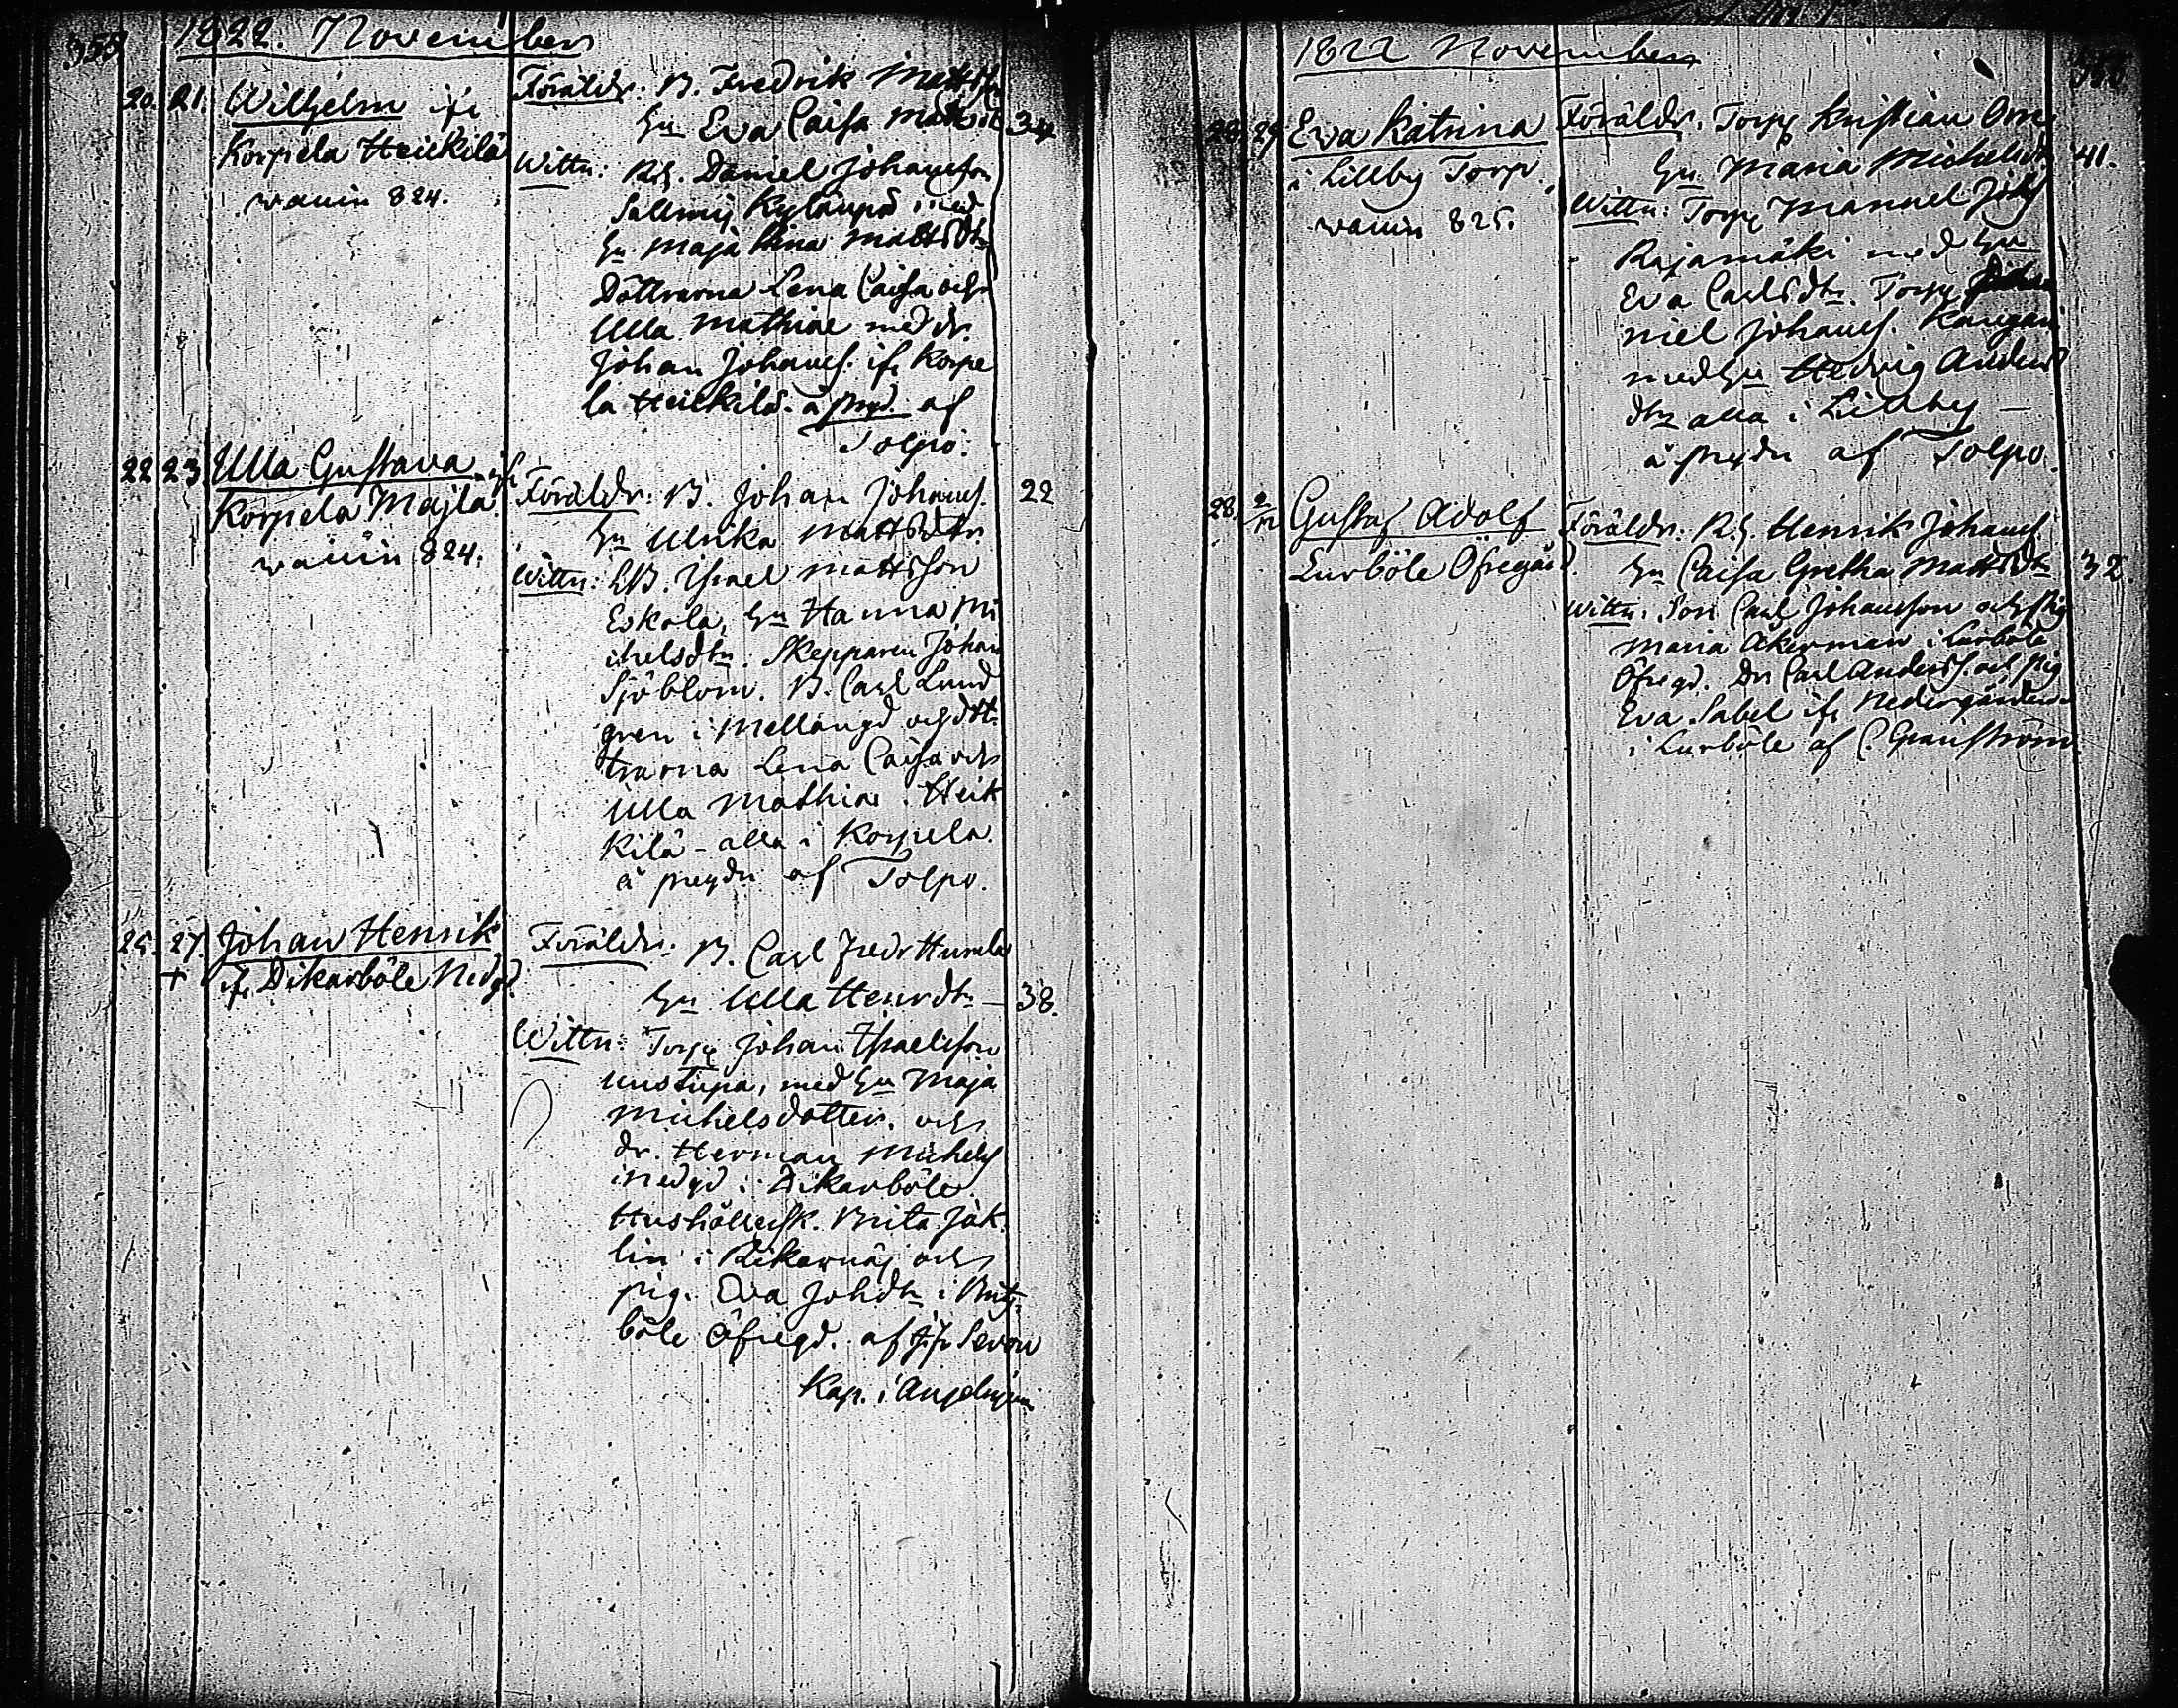 1822. November
20. 21. Wilhelm ifr
Korpela Heickilä
vaccin 824.
Föräldr: B. Fredrik Mattss
hu Eva Caisa Mattsdt 34
Wittn: Rh. Daniel Johansson
med
hu Maja Lina Mattsdtr
Döttrarna Lena Caisa och
Ulla Mathiae med dr.
Johan Johanss. ifr Korpe
la Heickilä. a pregd. af
Tolpo.
22 23. Ulla Gustava ifr
Korpela Majla
vaccin 824.
Föräldr: B. Johan Johanss. 22
hu Ulrika Mattsdtr
Wittn: LB. Israel Mattsson
Eskola, hu Hanna Mi
chelsdtr. Skepparen Johan
Sjöblom. B. Carl Lund
gren i Mellangd och dött
trarna Lena Caisa och
Ulla Mathiae. Heik
kilä - alla i Korpela.
a pregdn af Tolpo.
25. 27. Johan Henrik
+ ifr. Dikarböle Nedgd.
Föräldr: B. Carl Fredr Humble
hu Ulla Henrdtr - 38.
Wittn: Torp Johan Israelsson
Uustupa, med hu Maja
Michelsdotter. och
dr. Herman Michels
i Nedgd i Dikarböle.
Hushållersk. Brita Jak
lin i och
pig. Eva Johdtr i
böle Öfregd. af Sevon
Kap. i
1822 November
29 Eva Katrina
i Lillby Torp.
vaccin 825.
Föräldr. Torp Kristian Orre
hu Maria Michelsdt 41.
Wittn: Torp Manuel Johs
Rajamäki med hu
Eva Carlsdtr. Torp
niel Johanss. Kangas
med hu Hedvig Anders
dtr alla i Lillby -
a pregdn af Tolpo.
28. 2/12 Gustaf Adolf
Lurböle Öfregård.
Föräldr: Rh. Henrik Johanss
hu Caisa Gretha Mattsdtr 32.
Wittn: Son Carl Johansson och pig
Maria Akerman i Lurböle
Öfregd. Dr Carl Anderss. och pig
Eva Sabel ifr Nedergården
i Lurböle af C. Granström